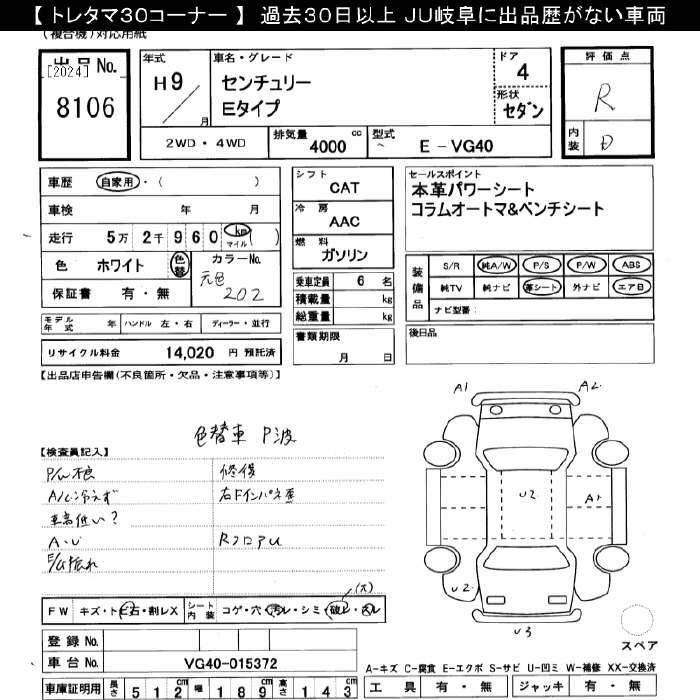 【 トレタマ30コーナー 】 過去30日以上 JU岐阜に出品歴がない車両
(複合機)対応用紙
出品 No.
[2024]
8106
年式
H9
月
車名・グレード
センチュリー
Eタイプ
ドア
4
形状
セダン
2WD ・ 4WD
排気量 4000 cc
型式 E - VG40
評価点
R
内装 D
車歴 自家用・( )
車検 年 月
走行 5万 2千 960 km マイル ( )
色 ホワイト 色替
カラーNo.
元色
202
保証書 有・無
シフト
CAT
冷房
AAC
燃料
ガソリン
乗車定員 6 名
積載量 kg
総重量 kg
セールスポイント
本革パワーシート
コラムオートマ&ベンチシート
装備品
S/R 純A/W P/S P/W ABS
純TV 純ナビ 革シート 外ナビ エアB
ナビ型番:
モデル年式 年 ハンドル 左・右 ディーラー・並行
リサイクル料金 14,020 円 預託済
書類期限
月 日
後日品
【出品店申告欄(不良箇所・欠品・注意事項等)】
色替車 P波
【検査員記入】
P/W不良
A/C冷えず
車高低い?
A・U
修復
右Fインパネ歪
RフロアU
A1
A2
U2
A1
U2
U3
スペア
(大)
FW キズ・トビ石・割レX
シート内装 コゲ・穴・汚レ・シミ・破レ・スレ
登録 No.
車台 No. VG40-015372
車庫証明用 長さ 512 cm 幅 189 cm 高さ 143 cm
A-キズ C-腐食 E-エクボ S-サビ U-凹ミ W-補修 XX-交換済
工具 有・無 ジャッキ 有・無